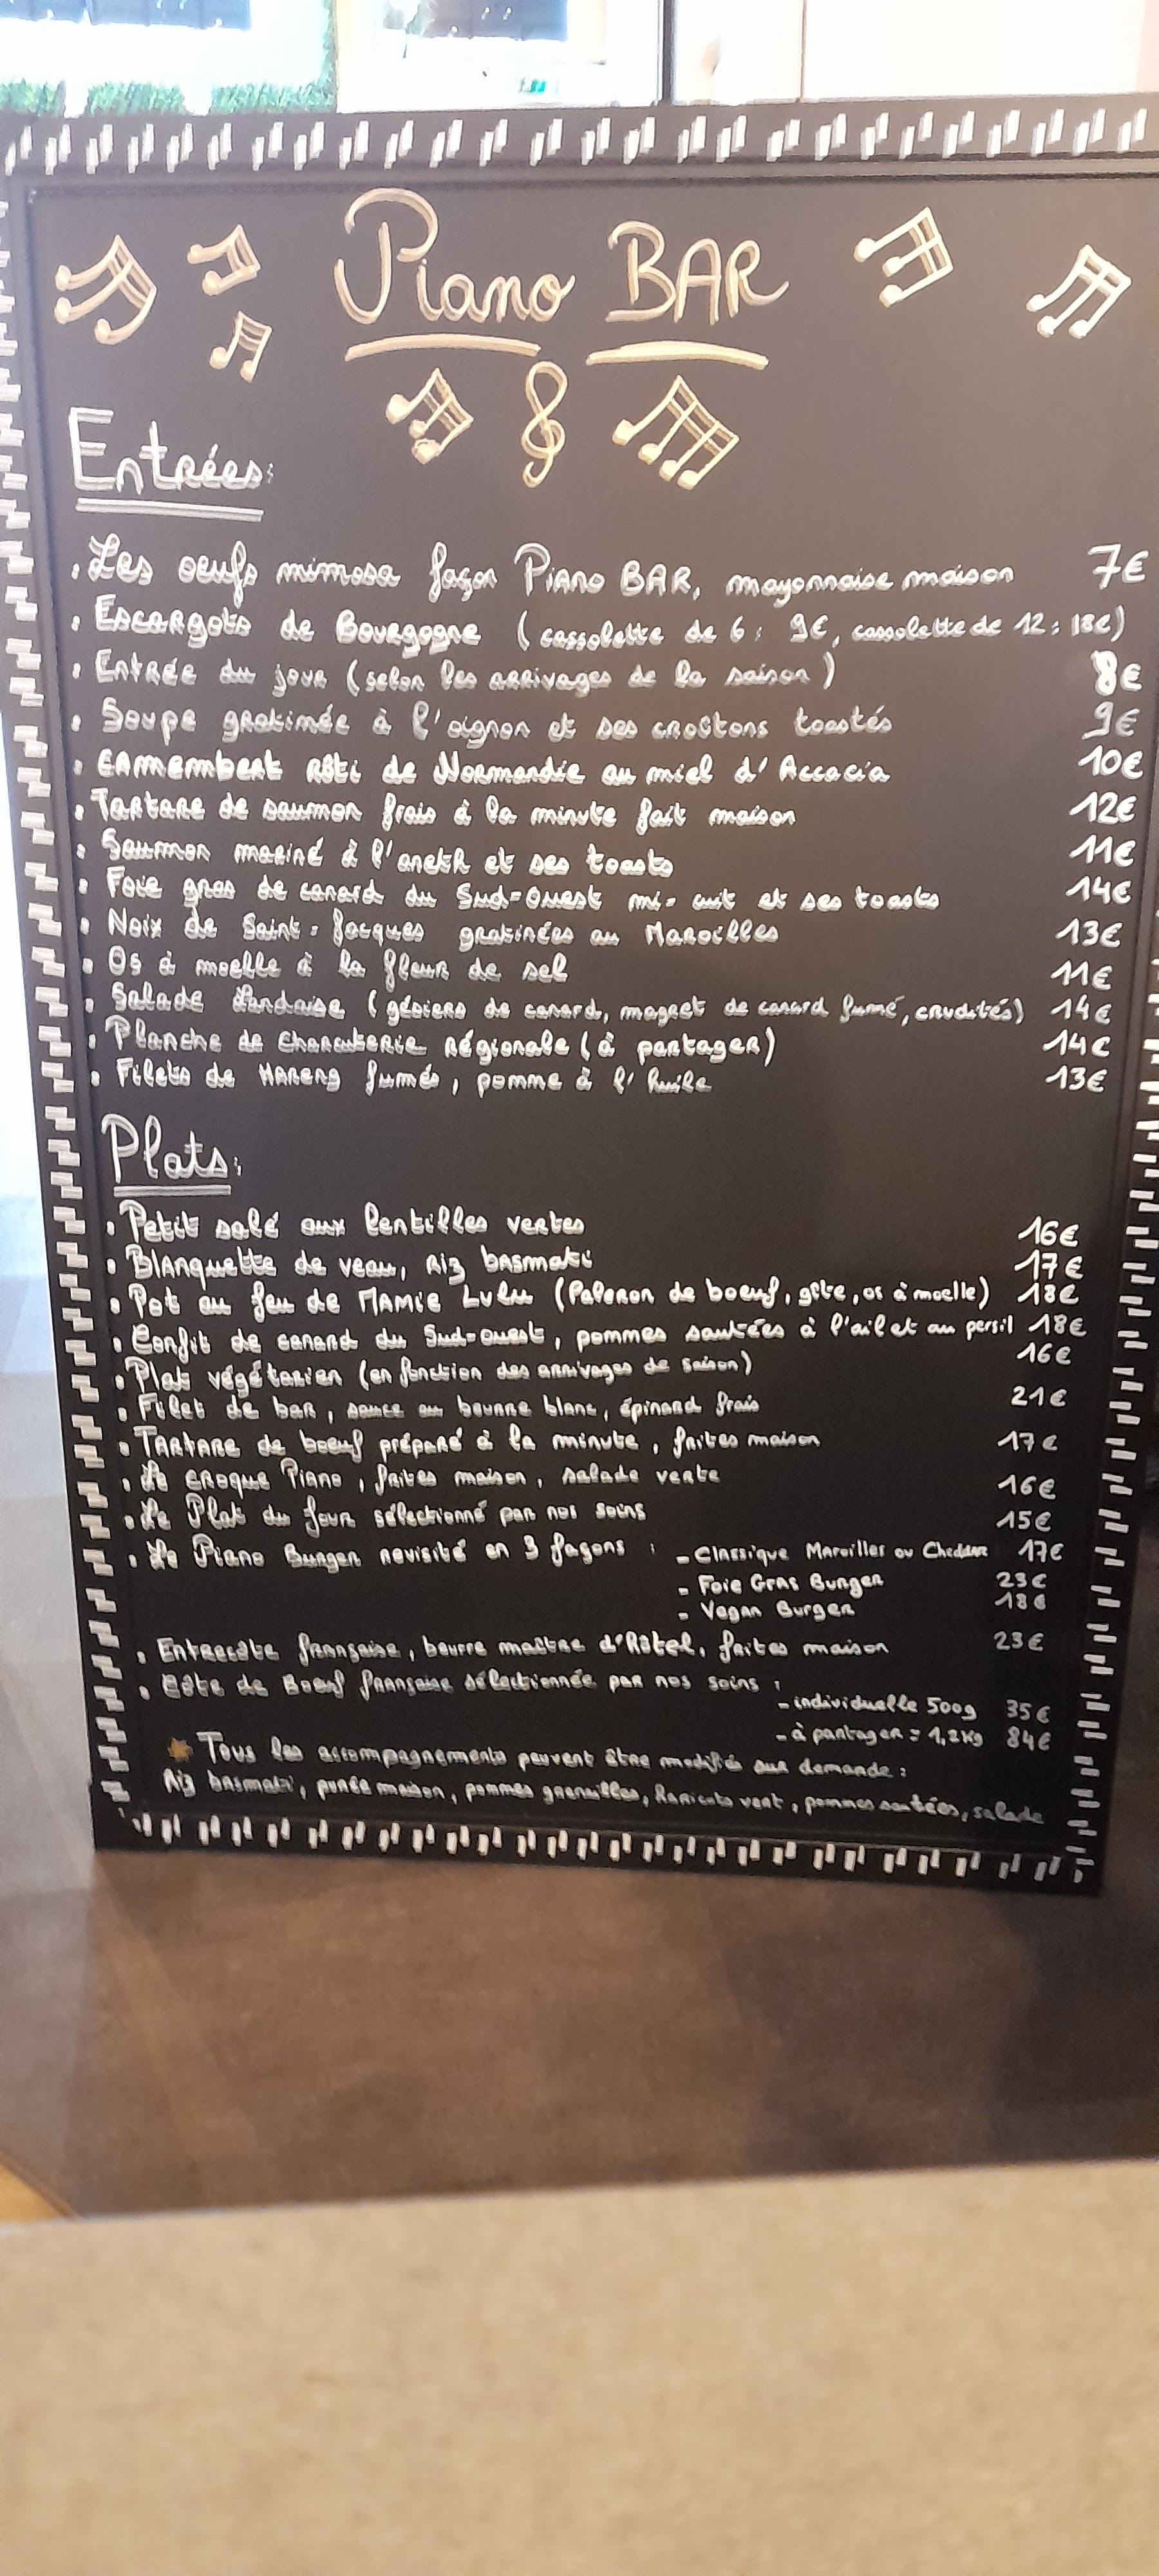 Piano BAR
Entrées:
• Les oeufs mimosa façon Piano BAR, mayonnaise maison 7€
• Escargots de Bourgogne (cassolette de 6: 9€, cassolette de 12: 18€)
• Entrée du jour (selon les arrivages de la saison) 8€
• Soupe gratinée à l'oignon et ses croûtons toastés 9€
• Camembert rôti de Normandie au miel d'Accacia 10€
• Tartare de saumon frais à la minute fait maison 12€
• Saumon mariné à l'aneth et ses toasts 11€
• Foie gras de canard du Sud-Ouest mi-cuit et ses toasts 14€
• Noix de Saint-Jacques gratinées au Maroilles 13€
• Os à moelle à la fleur de sel 11€
• Salade Landaise (gésiers de canard, magret de canard fumé, crudités) 14€
• Planche de Charcuterie Régionale (à partager) 14€
• Filets de Hareng fumés, pomme à l'huile 13€
Plats:
• Petit salé aux lentilles vertes 16€
• Blanquette de veau, riz basmati 17€
• Pot au feu de Mamie Lulu (Paleron de boeuf, gîte, os à moelle) 18€
• Confit de canard du Sud-Ouest, pommes sautées à l'ail et au persil 18€
• Plat végétarien (en fonction des arrivages de saison) 16€
• Filet de bar, sauce au beurre blanc, épinard frais 21€
• Tartare de boeuf préparé à la minute, frites maison 17€
• Le Croque Piano, frites maison, salade verte 16€
• Le Plat du Jour sélectionné par nos soins 15€
• Le Piano Burger revisité en 3 façons : - Classique Maroilles ou Cheddar 17€
- Foie Gras Burger 23€
- Vegan Burger 18€
• Entrecôte française, beurre maître d'Hôtel, frites maison 23€
• Côte de Boeuf française sélectionnée par nos soins :
- individuelle 500g 35€
- à partager = 1,2kg 84€
Tous les accompagnements peuvent être modifiés sur demande:
Riz basmati, purée maison, pommes grenailles, haricots vert, pommes sautées, salade